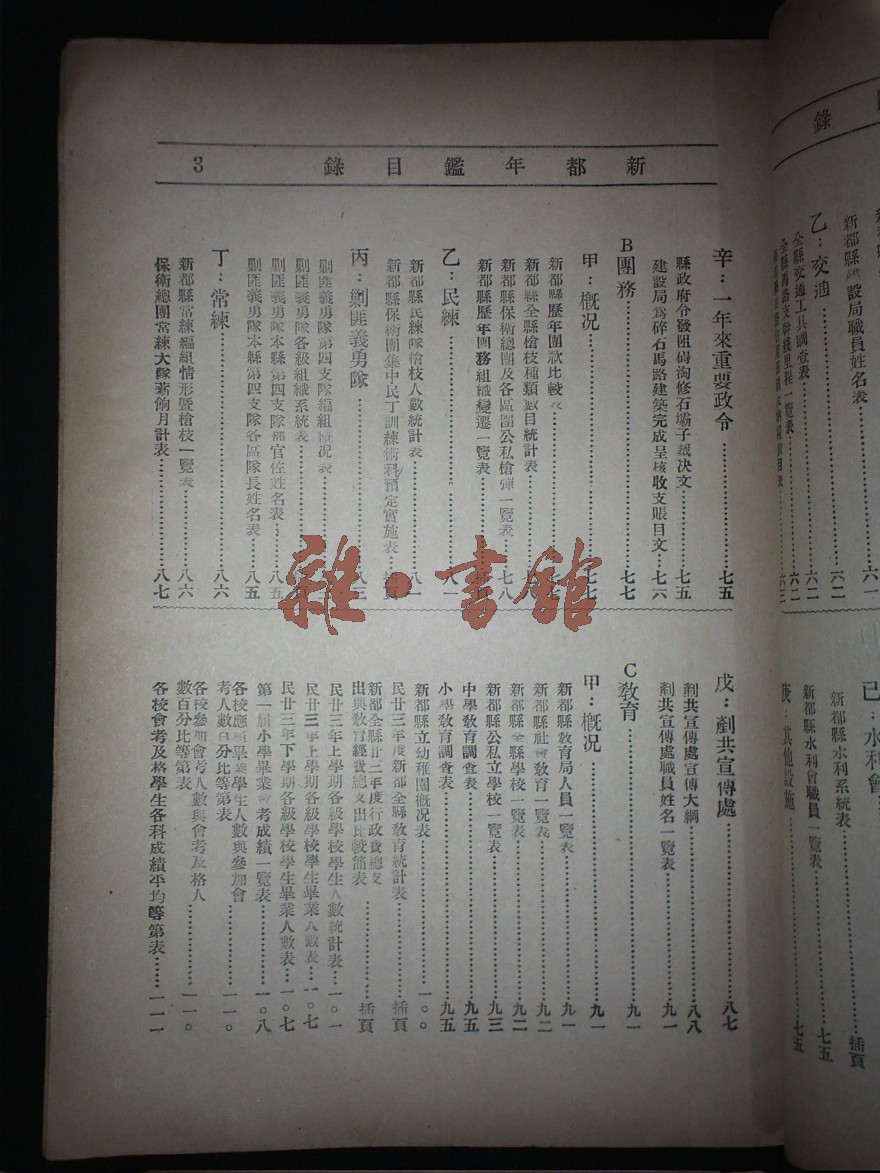 新都年鑑目錄 3
辛：一年來重要政令……七五
縣政府令發阻碍淘修石壩子裁决文……七五
建設局爲碎石馬路建築完成呈核收支賬目文……七六
B 團務……七七
甲：概况……七七
新都縣歷年團款比較表
新都縣全縣槍枝種類數目統計表
新都縣保衛總團及各區團公私槍彈一覽表……七八
新都縣歷年團務組織變遷一覽表……插頁
乙：民練……八一
新都縣民練隊槍枝人數統計表……八一
新都縣保衛團集中民丁訓練術科預定實施表……插頁
丙：剿匪義勇隊
剿匪義勇隊第四支隊編組概况表
剿匪義勇隊各級組織系統表
剿匪義勇隊本縣第四支隊部官佐姓名表……八五
剿匪義勇隊本縣第四支隊各區隊長姓名表……八五
丁：常練……八六
新都縣常練編組情形暨槍枝一覽表……八六
保衛總團常練大隊薪餉月計表……八七
戊：剷共宣傳處……八七
剷共宣傳處宣傳大綱……八八
剷共宣傳處職員姓名一覽表……九一
C 敎育……九一
甲：概况……九一
新都縣敎育局人員一覽表……九一
新都縣社會敎育一覽表……九二
新都縣全縣學校一覽表……九二
新都縣公私立學校一覽表……九三
中學敎育調查表……九五
小學敎育調查表……九五
新都縣立幼稚園概况表……一〇〇
民廿三年度新都全縣敎育統計表……插頁
新都全縣廿三年度行政費總支
出與敎育經費總支出比較簡表……插頁
民廿三年上學期各級學校學生人數統計表……一〇一
民廿三年上學期各級學校學生畢業人數表……一〇七
民廿三年下學期各級學校學生畢業人數表……一〇七
第一屆小學畢業會考成績一覽表……一〇八
各校應屆畢業學生人數與參加會
考人數百分比等第表……一一〇
各校參加會考人數與會考及格人
數百分比等第表……一一〇
各校會考及格學生各科成績平均等第表……一一一
錄
新都縣建設局職員姓名表……六二
乙：交通……六二
全縣交通工具調查表……六二
全縣馬路支幹綫里程一覽表
己：水利會……插頁
新都縣水利系統表
新都縣水利會職員一覽表……七五
庚：其他設施……七五
雜·書館